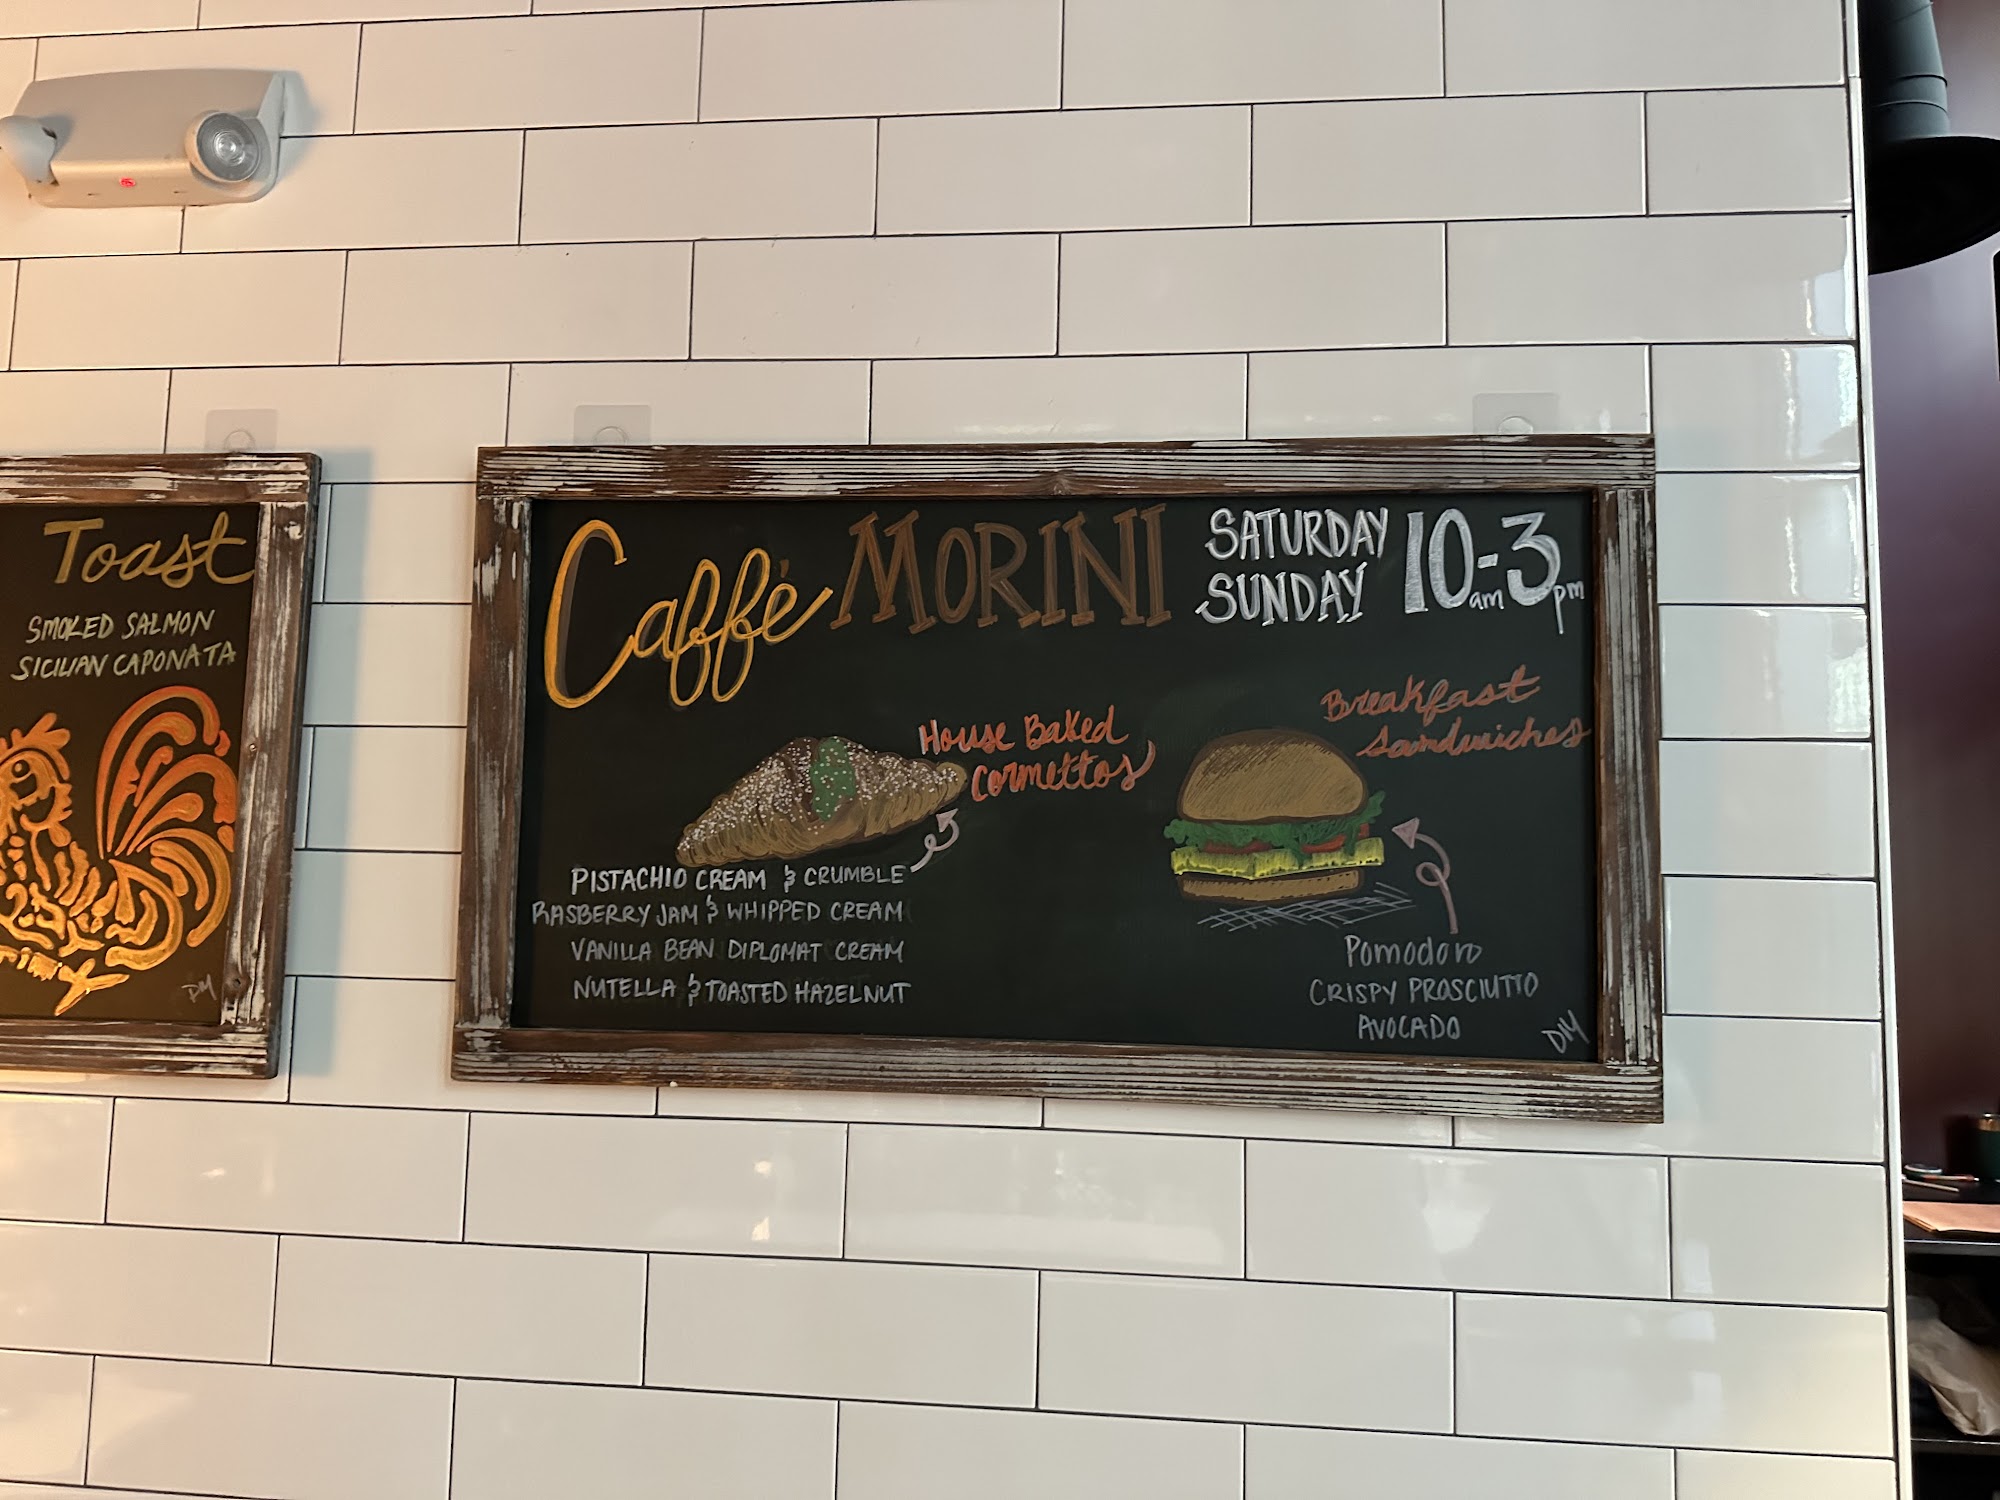 Toast
SMOKED SALMON
SICILIAN CAPONATA
DM
Caffé MORINI
SATURDAY
SUNDAY
10am-3pm
House Baked
Cormettos
PISTACHIO CREAM & CRUMBLE
RASBERRY JAM & WHIPPED CREAM
VANILLA BEAN DIPLOMAT CREAM
NUTELLA & TOASTED HAZELNUT
Breakfast
Sandwiches
Pomodoro
CRISPY PROSCIUTTO
AVOCADO
DM